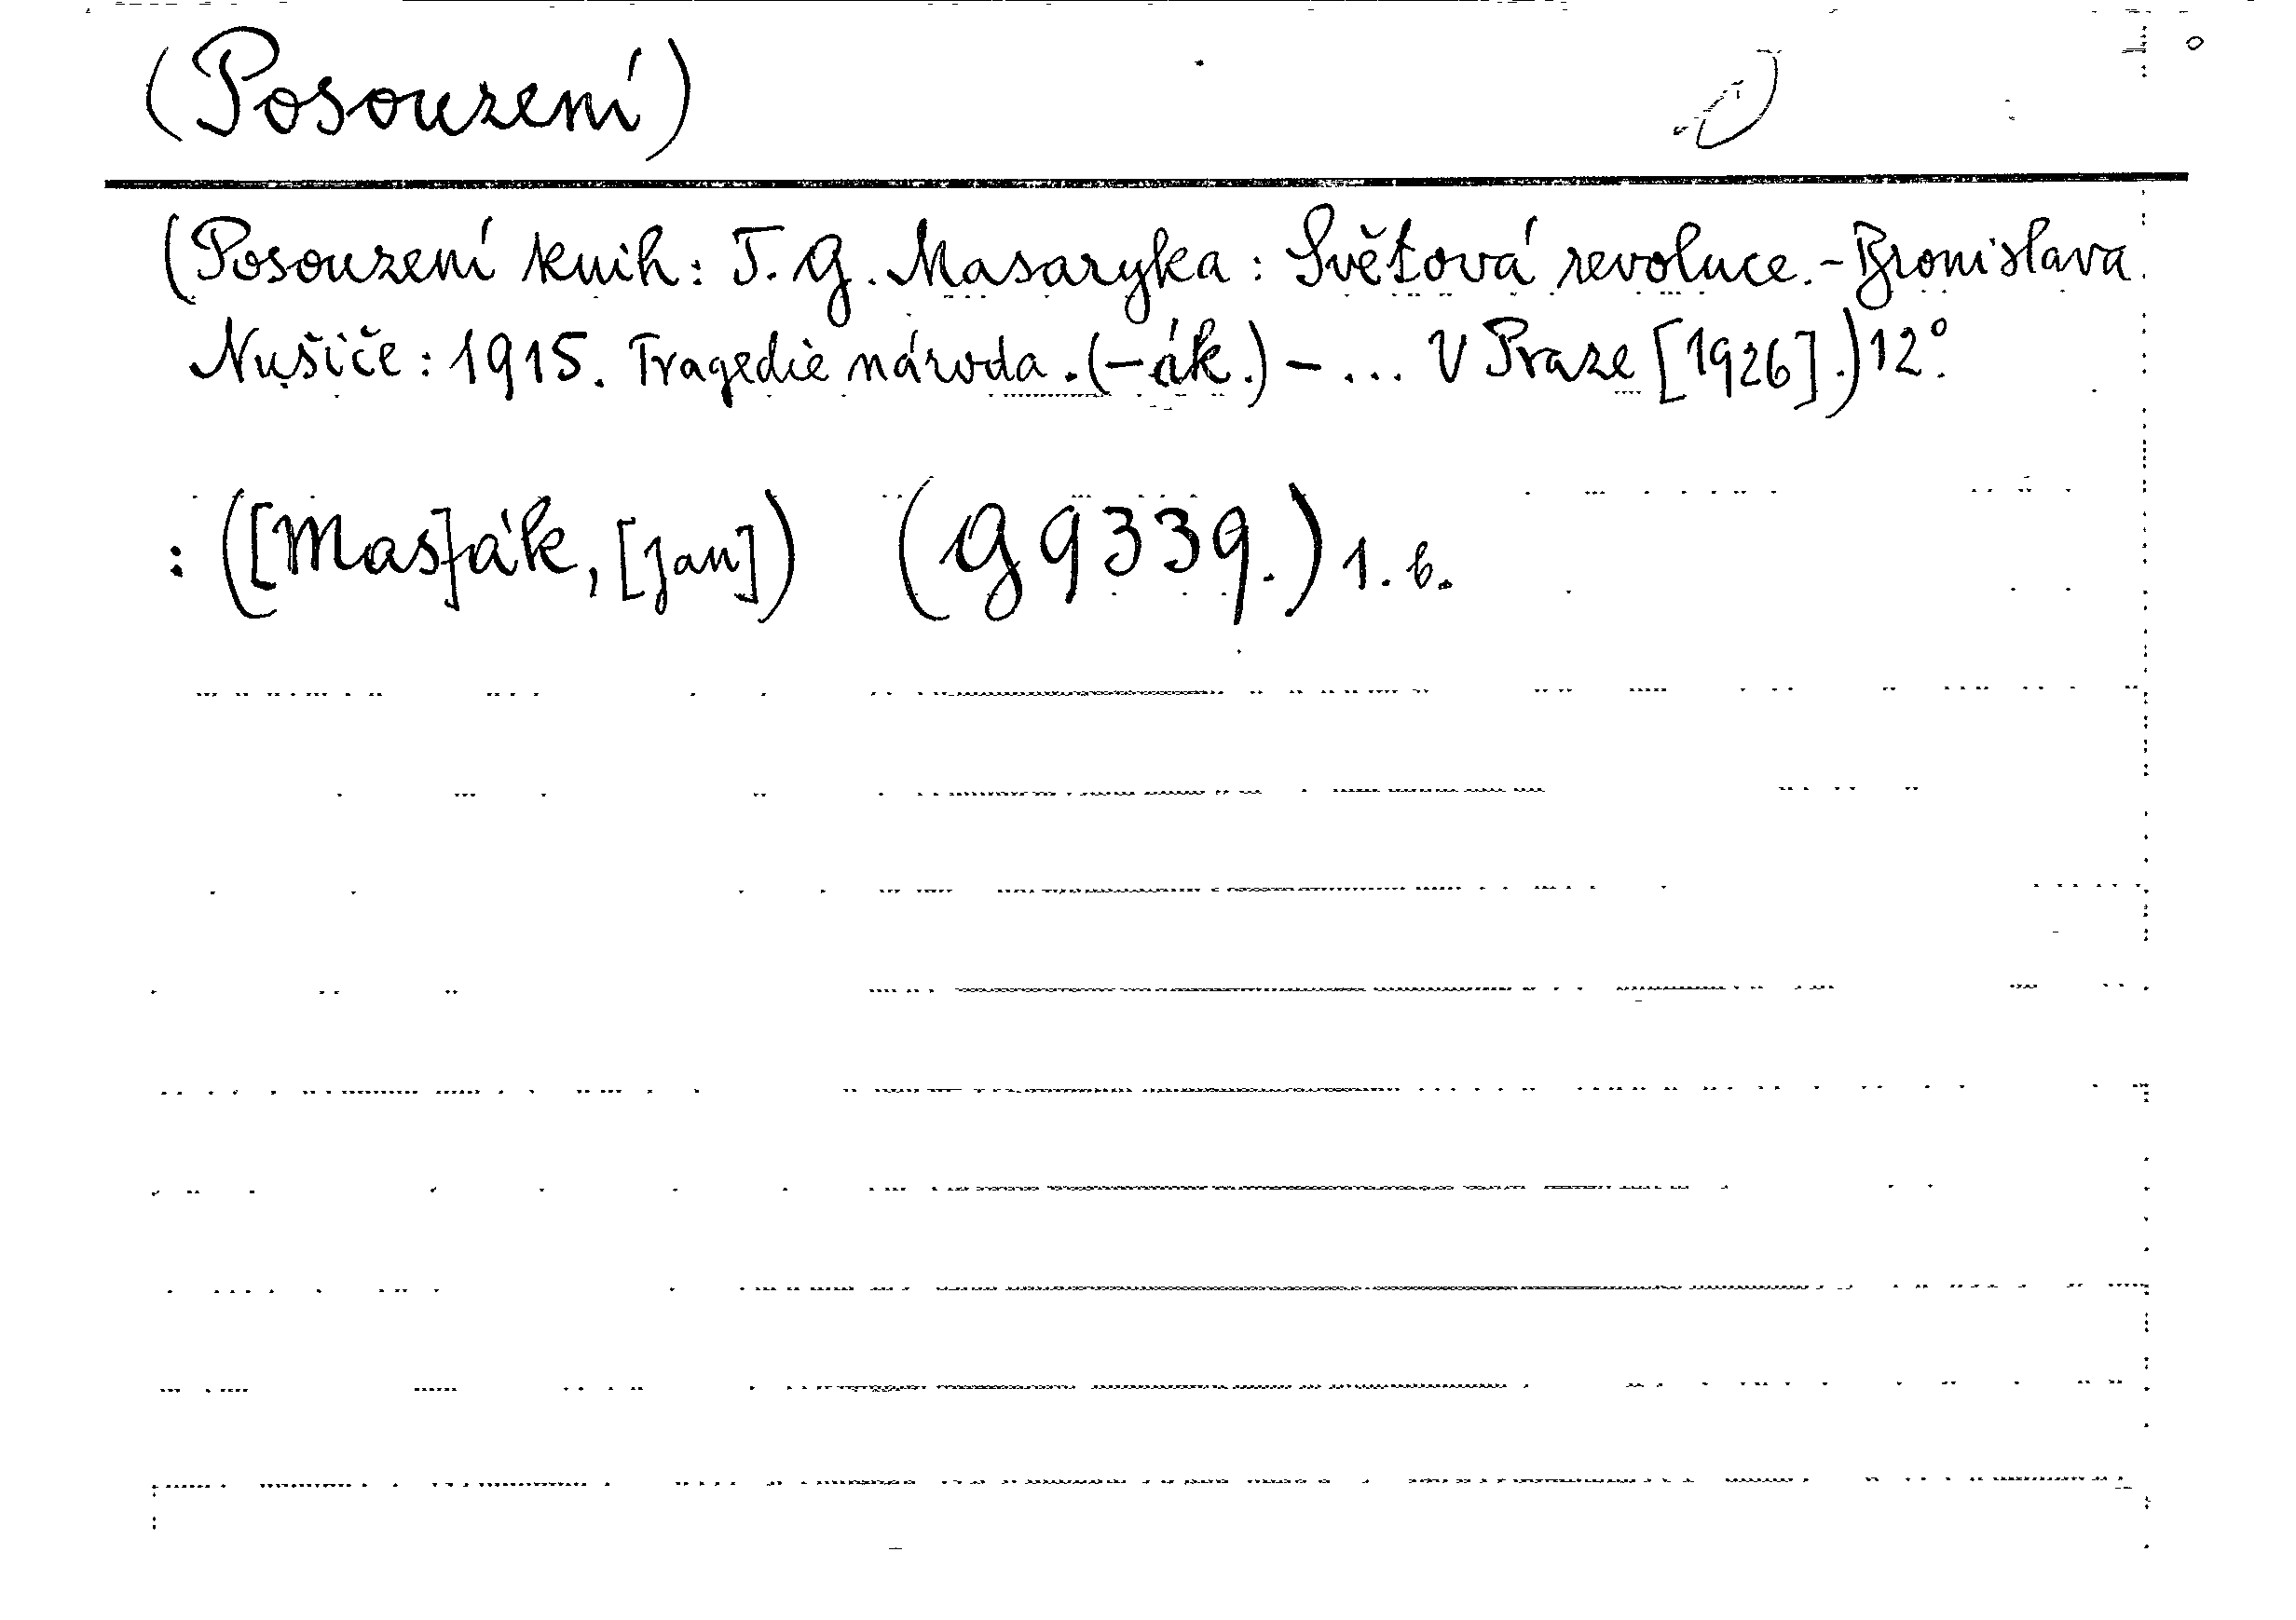 (Posouzení)
(Posouzení knih: T. G. Masaryka: Světová revoluce. - Bronislava
Nušiče: 1915. Tragedie národa. (-ák.) - ... V Praze [1926].) 12°.
: ([Mas]ák, [Jan]) (G 9339.) 1. b.